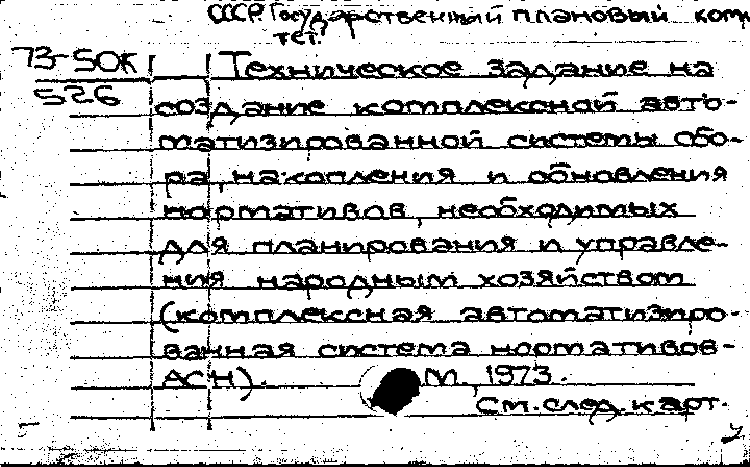 СССР. Государственный плановый коми
тет.
73-50к
526
Техническое задание на
создание комплексной авто-
матизированной системы сбо-
ра, накопления и обновления
нормативов, необходимых
для планирования и управле-
ния народным хозяйством
(комплексная автоматизиро-
ванная система нормативов-
АСН). М., 1973.
См. след. карт.